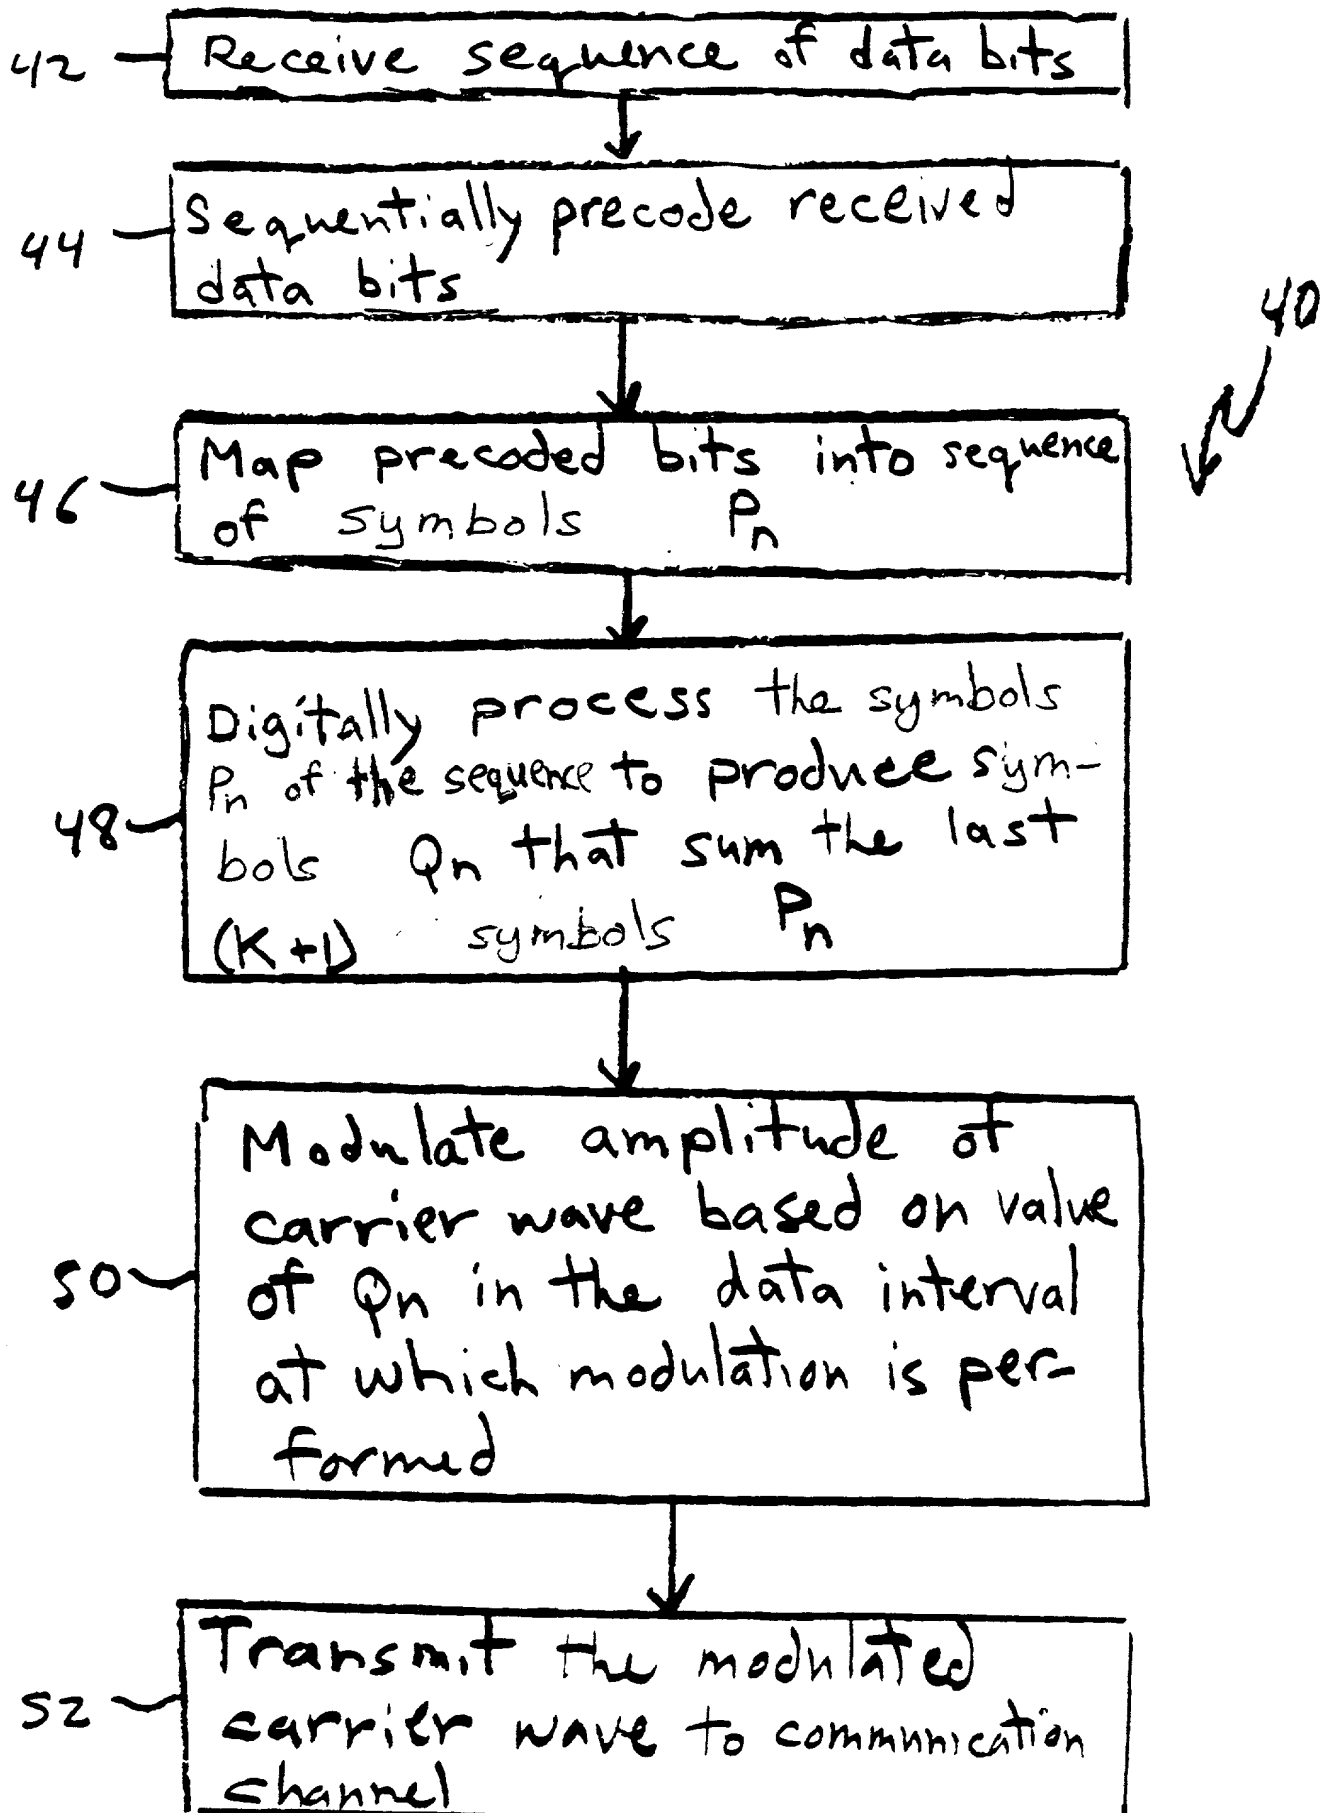 42 Receive sequence of data bits
44 Sequentially precode received
data bits
40
46 Map precoded bits into sequence
of symbols Pn
Digitally process the symbols
Pn of the sequence to produce sym-
48 bols Qn that sum the last
(K+1) symbols Pn
Modulate amplitude of
carrier wave based on value
50 of Qn in the data interval
at which modulation is per-
formed
Transmit the modulated
52 carrier wave to communication
channel